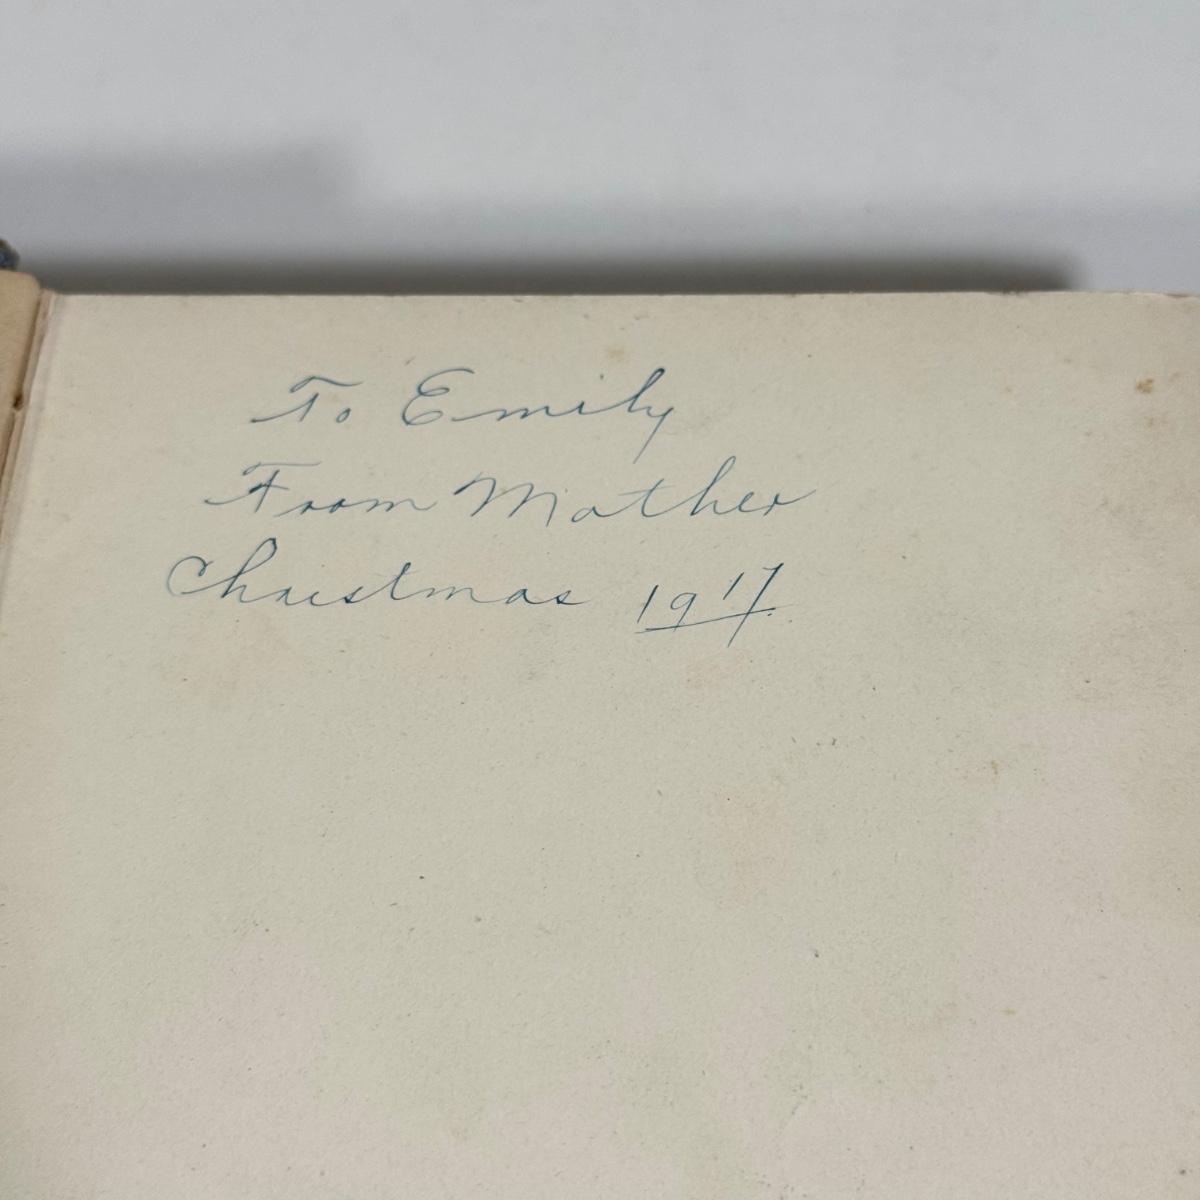 To Emily
From Mother
Christmas 1917.